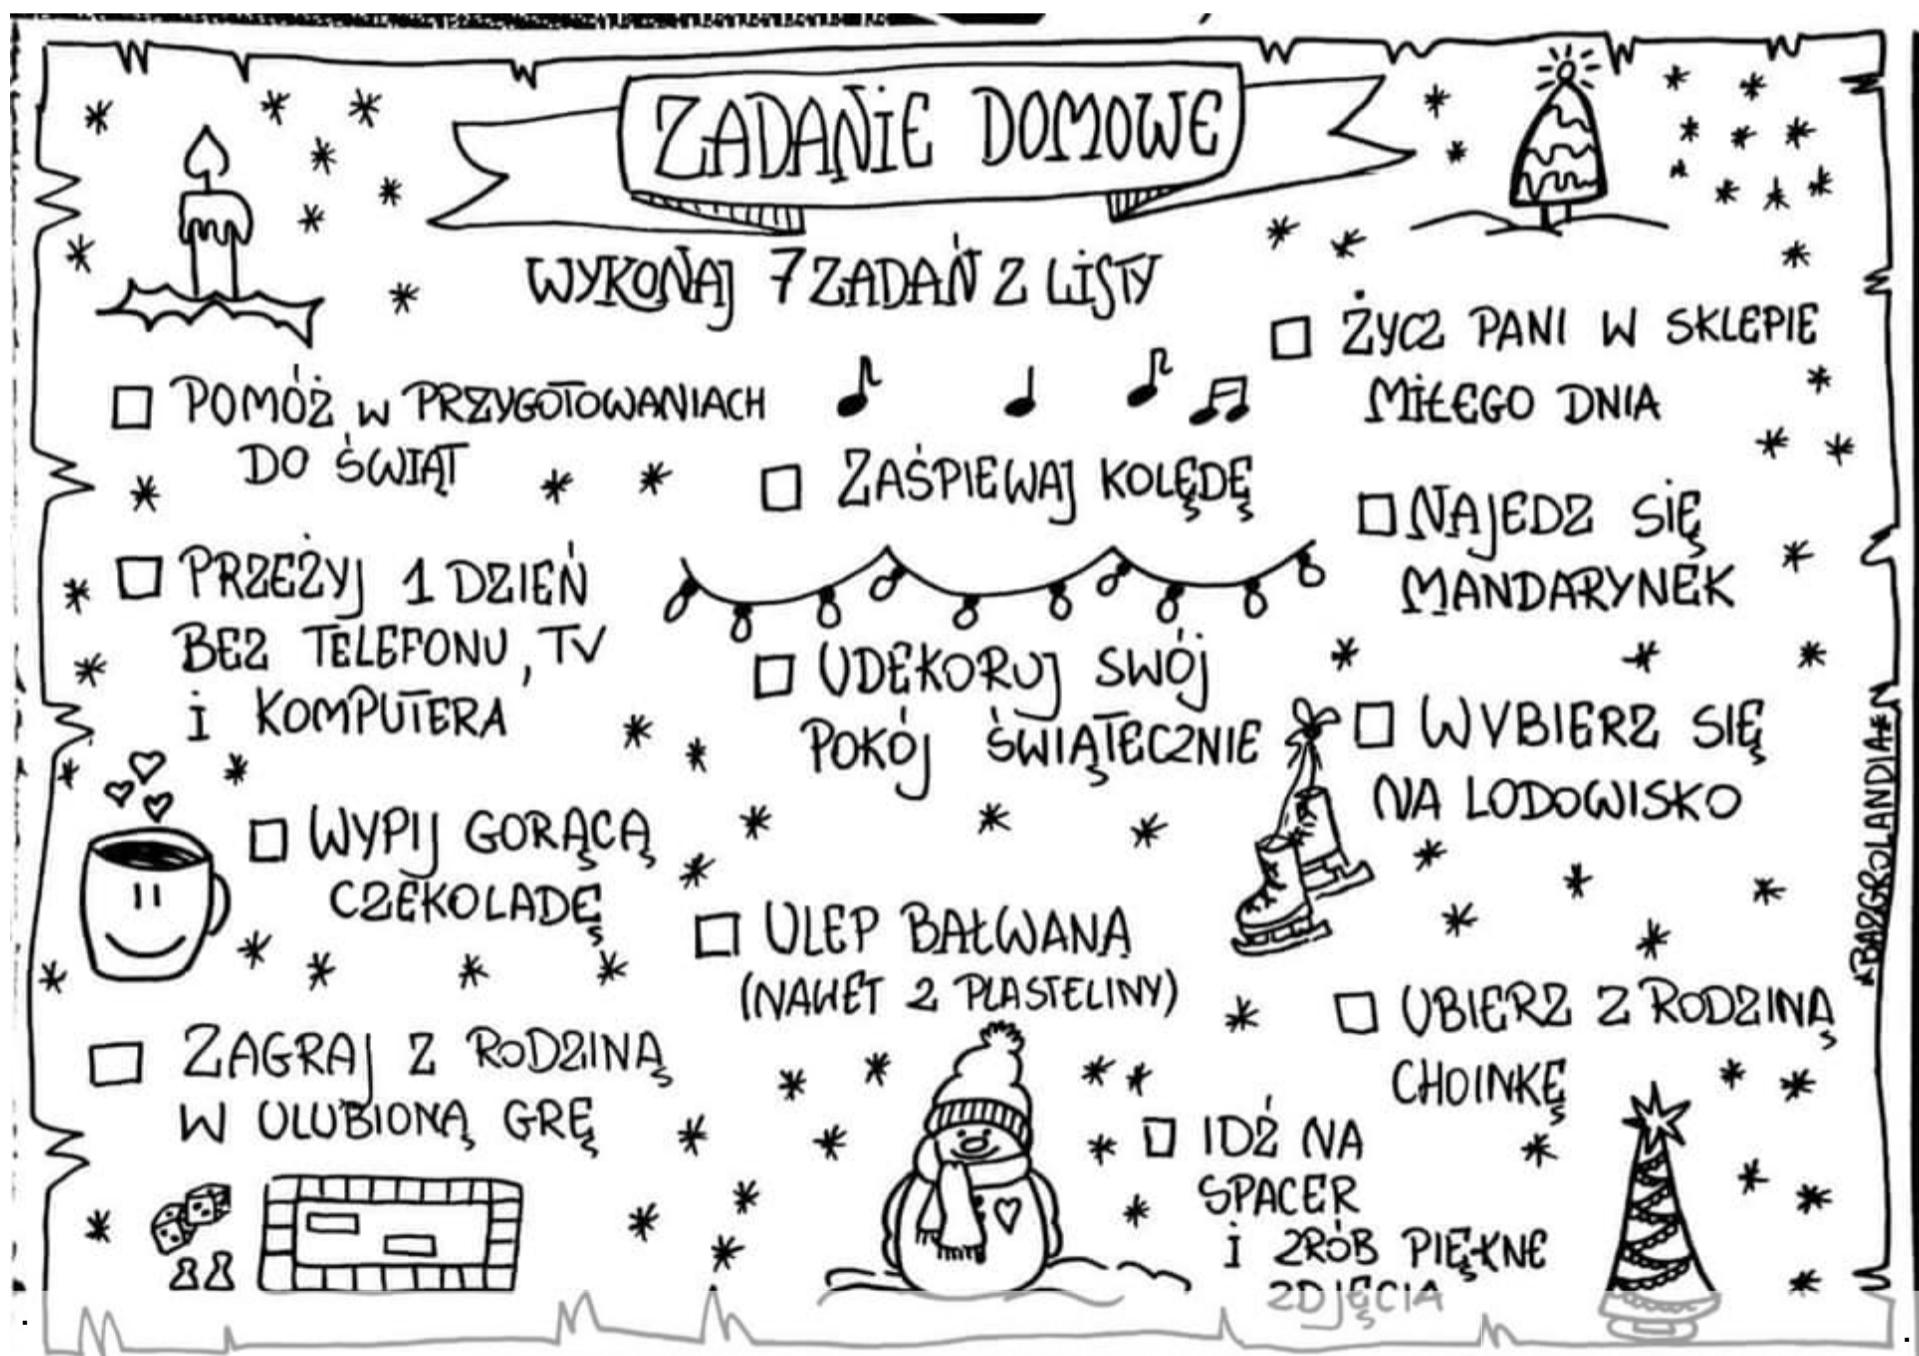 ZADANIE DOMOWE
WYKONAJ 7 ZADAŃ Z LISTY
□ POMÓŻ W PRZYGOTOWANIACH
DO ŚWIĄT
□ PRZEŻYJ 1 DZIEŃ
BEZ TELEFONU, TV
I KOMPUTERA
□ WYPIJ GORĄCĄ
CZEKOLADĘ
□ ZAGRAJ Z RODZINĄ
W ULUBIONĄ GRĘ
□ ZAŚPIEWAJ KOLĘDĘ
□ UDEKORUJ SWÓJ
POKÓJ ŚWIĄTECZNIE
□ ULEP BAŁWANĄ
(NAWET Z PLASTELINY)
□ ŻYCZ PANI W SKLEPIE
MIŁEGO DNIA
□ NAJEDZ SIĘ
MANDARYNEK
□ WYBIERZ SIĘ
NA LODOWISKO
□ UBIERZ Z RODZINĄ
CHOINKĘ
□ IDŹ NA
SPACER
I ZRÓB PIĘKNE
ZDJĘCIA
*BAZGROLANDIA*